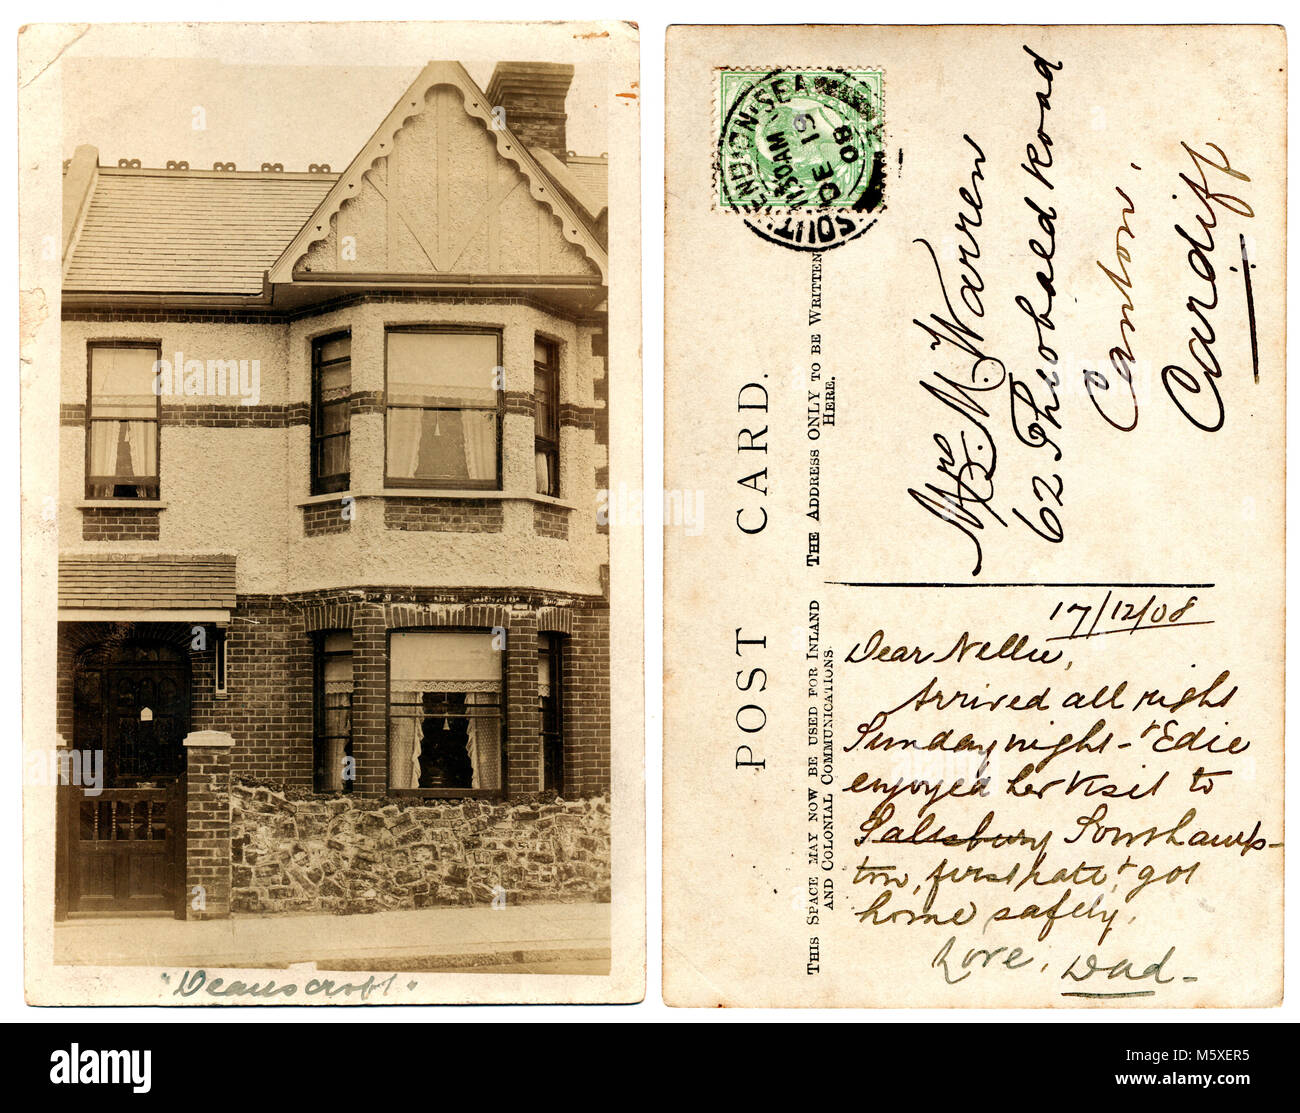 "Deanscroft"
SOUTHEND-ON-SEA
11.30AM
DE 19
08
POST CARD.
THE ADDRESS ONLY TO BE WRITTEN
HERE.
THIS SPACE MAY NOW BE USED FOR INLAND
AND COLONIAL COMMUNICATIONS.
Mrs M. Warren
62 Theobald Road
Canton.
Cardiff
17/12/08
Dear Nellie,
Arrived all right
Sunday night - & Edie
enjoyed her visit to
Salisbury Southamp-
ton, first rate, & got
home safely.
Love, Dad-
alamy
alamy
Image ID: M5XER5
www.alamy.com